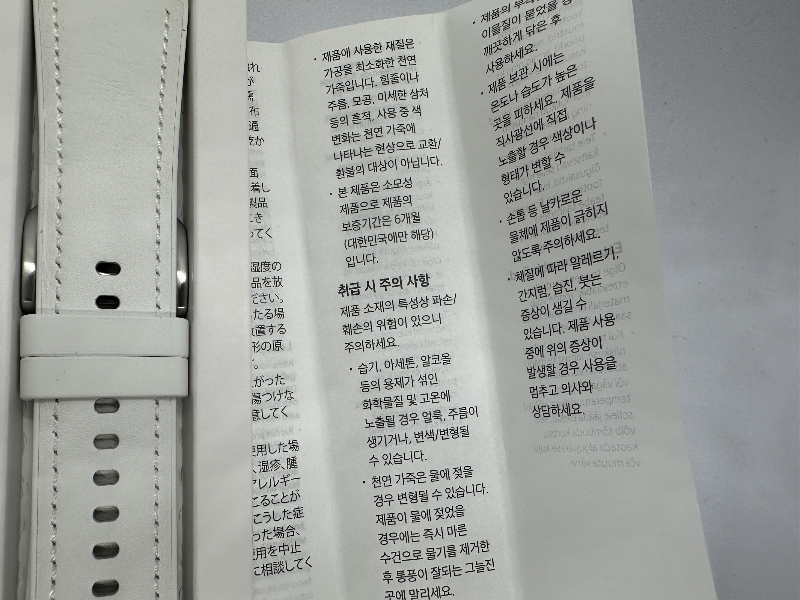 面
製品
湿度の
品を放
ださい。
たる場
放置する
形の原
がった
傷つけな
意してく
使用した場
、湿疹、腫
アレルギー
こることが
こうした症
った場合、
使用を中止
に相談してく
• 제품에 사용한 재질은
가공을 최소화한 천연
가죽입니다. 힘줄이나
주름, 모공, 미세한 상처
등의 흔적, 사용 중 색
변화는 천연 가죽에
나타나는 현상으로 교환/
환불의 대상이 아닙니다.
• 본 제품은 소모성
제품으로 제품의
보증기간은 6개월
(대한민국에만 해당)
입니다.
취급 시 주의 사항
제품 소재의 특성상 파손/
훼손의 위험이 있으니
주의하세요.
• 습기, 아세톤, 알코올
등의 용제가 섞인
화학물질 및 고온에
노출될 경우 얼룩, 주름이
생기거나, 변색/변형될
수 있습니다.
• 천연 가죽은 물에 젖을
경우 변형될 수 있습니다.
제품이 물에 젖었을
경우에는 즉시 마른
수건으로 물기를 제거한
후 통풍이 잘되는 그늘진
곳에 말리세요.
• 제품의
이물질이 묻었을
깨끗하게 닦은 후
사용하세요.
• 제품 보관 시에는
온도나 습도가 높은
곳을 피하세요. 제품을
직사광선에 직접
노출할 경우 색상이나
형태가 변할 수
있습니다.
• 손톱 등 날카로운
물체에 제품이 긁히지
않도록 주의하세요.
• 체질에 따라 알레르기,
간지럼, 습진, 붓는
증상이 생길 수
있습니다. 제품 사용
중에 위의 증상이
발생할 경우 사용을
멈추고 의사와
상담하세요.